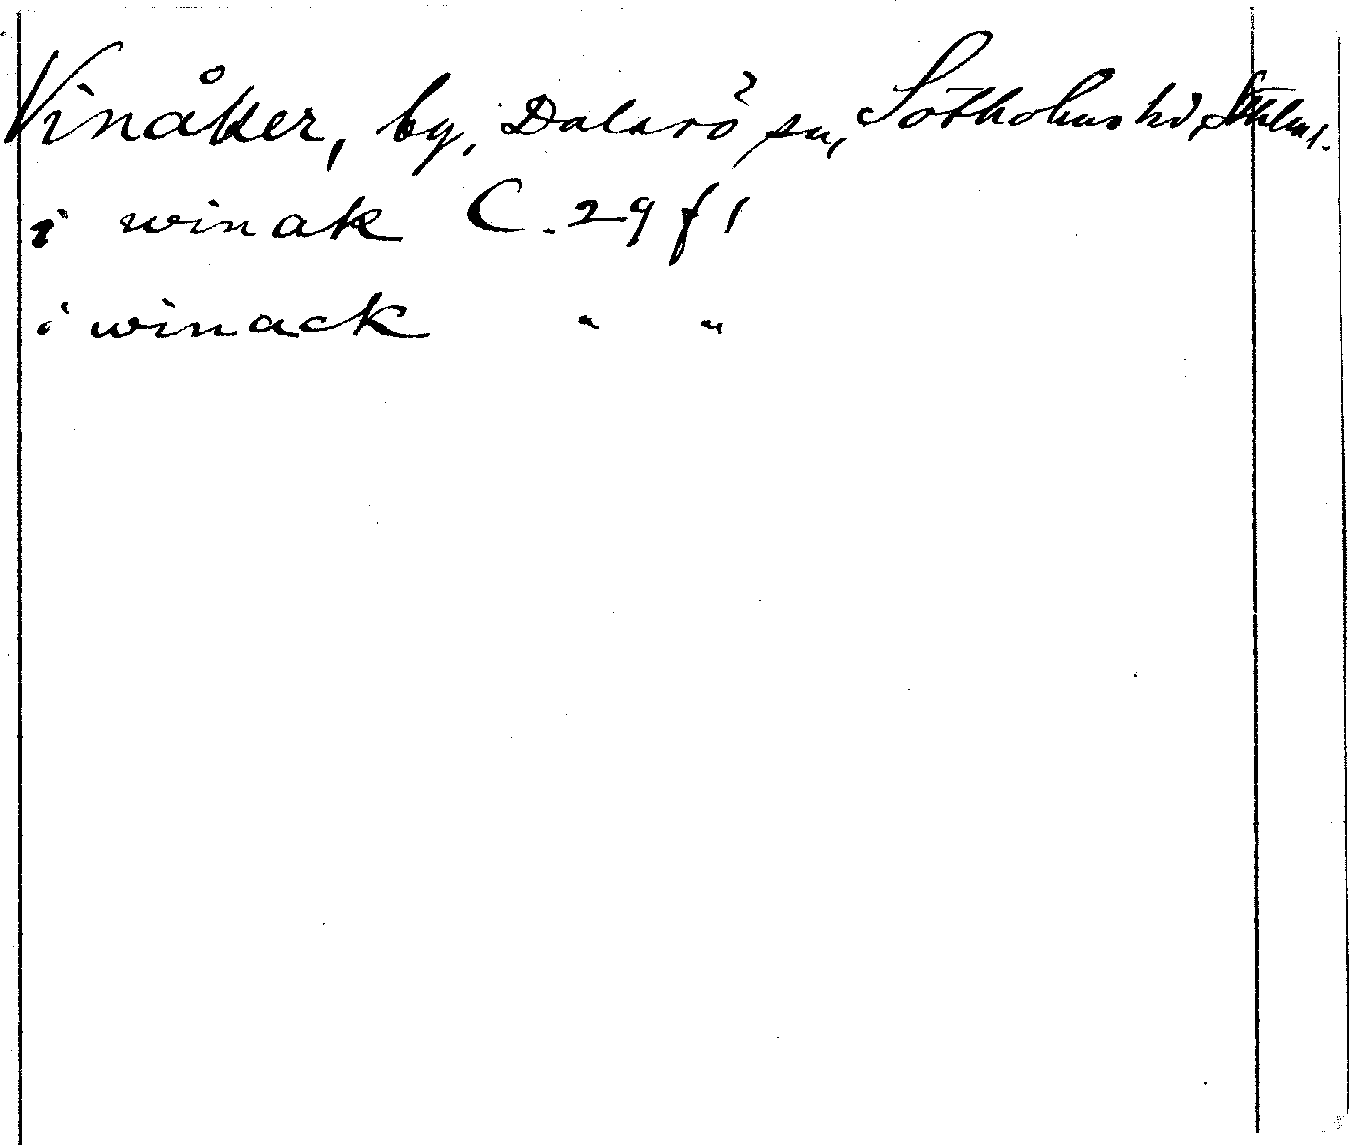 Vinåker, by, Dalarö sn, Sotholms hd, Sthlms l.
i winak C. 29 f 1
i winack " "